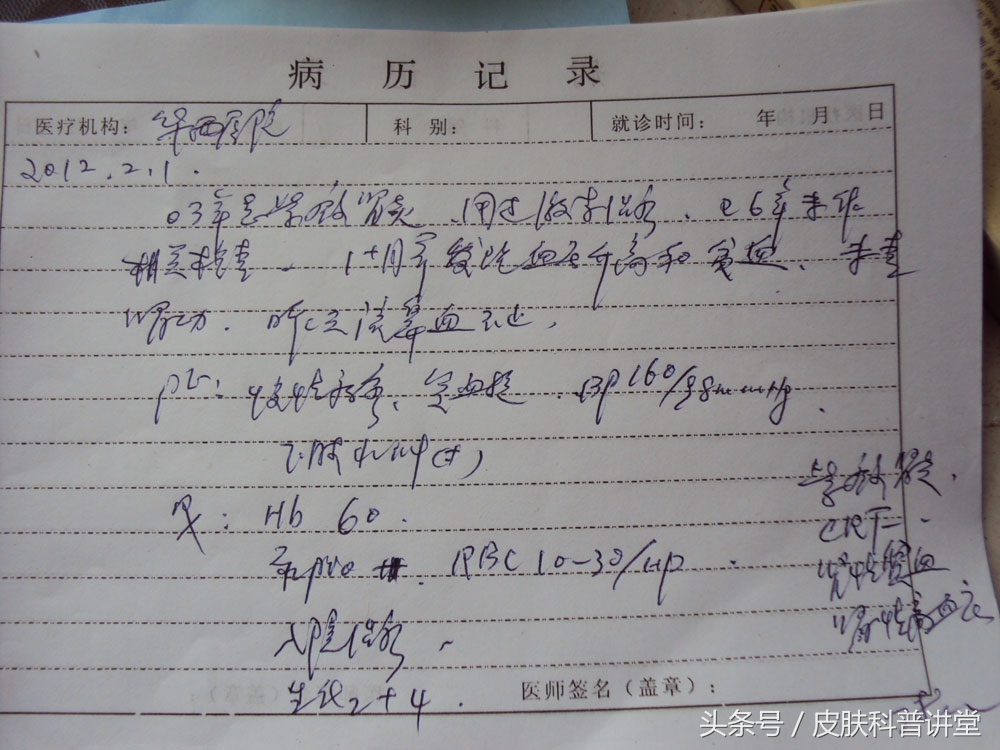 病历记录
医疗机构: 华西医院 科别: 就诊时间: 年 月 日
2012.2.1.
03年患紫癜肾炎、用过激素治疗、06年未作
相关检查、1+月前发现血压升高和贫血、未查
肾功.
PE: 慢性病容、贫血貌. BP 160/98mmHg.
下肢水肿(+)
Hb 60.
pro RBC 10-30/HP
紫癜肾炎.
CRF.
肾性贫血
肾性高血压
入院治疗.
生化2+4.
医师签名(盖章):
头条号 / 皮肤科普讲堂